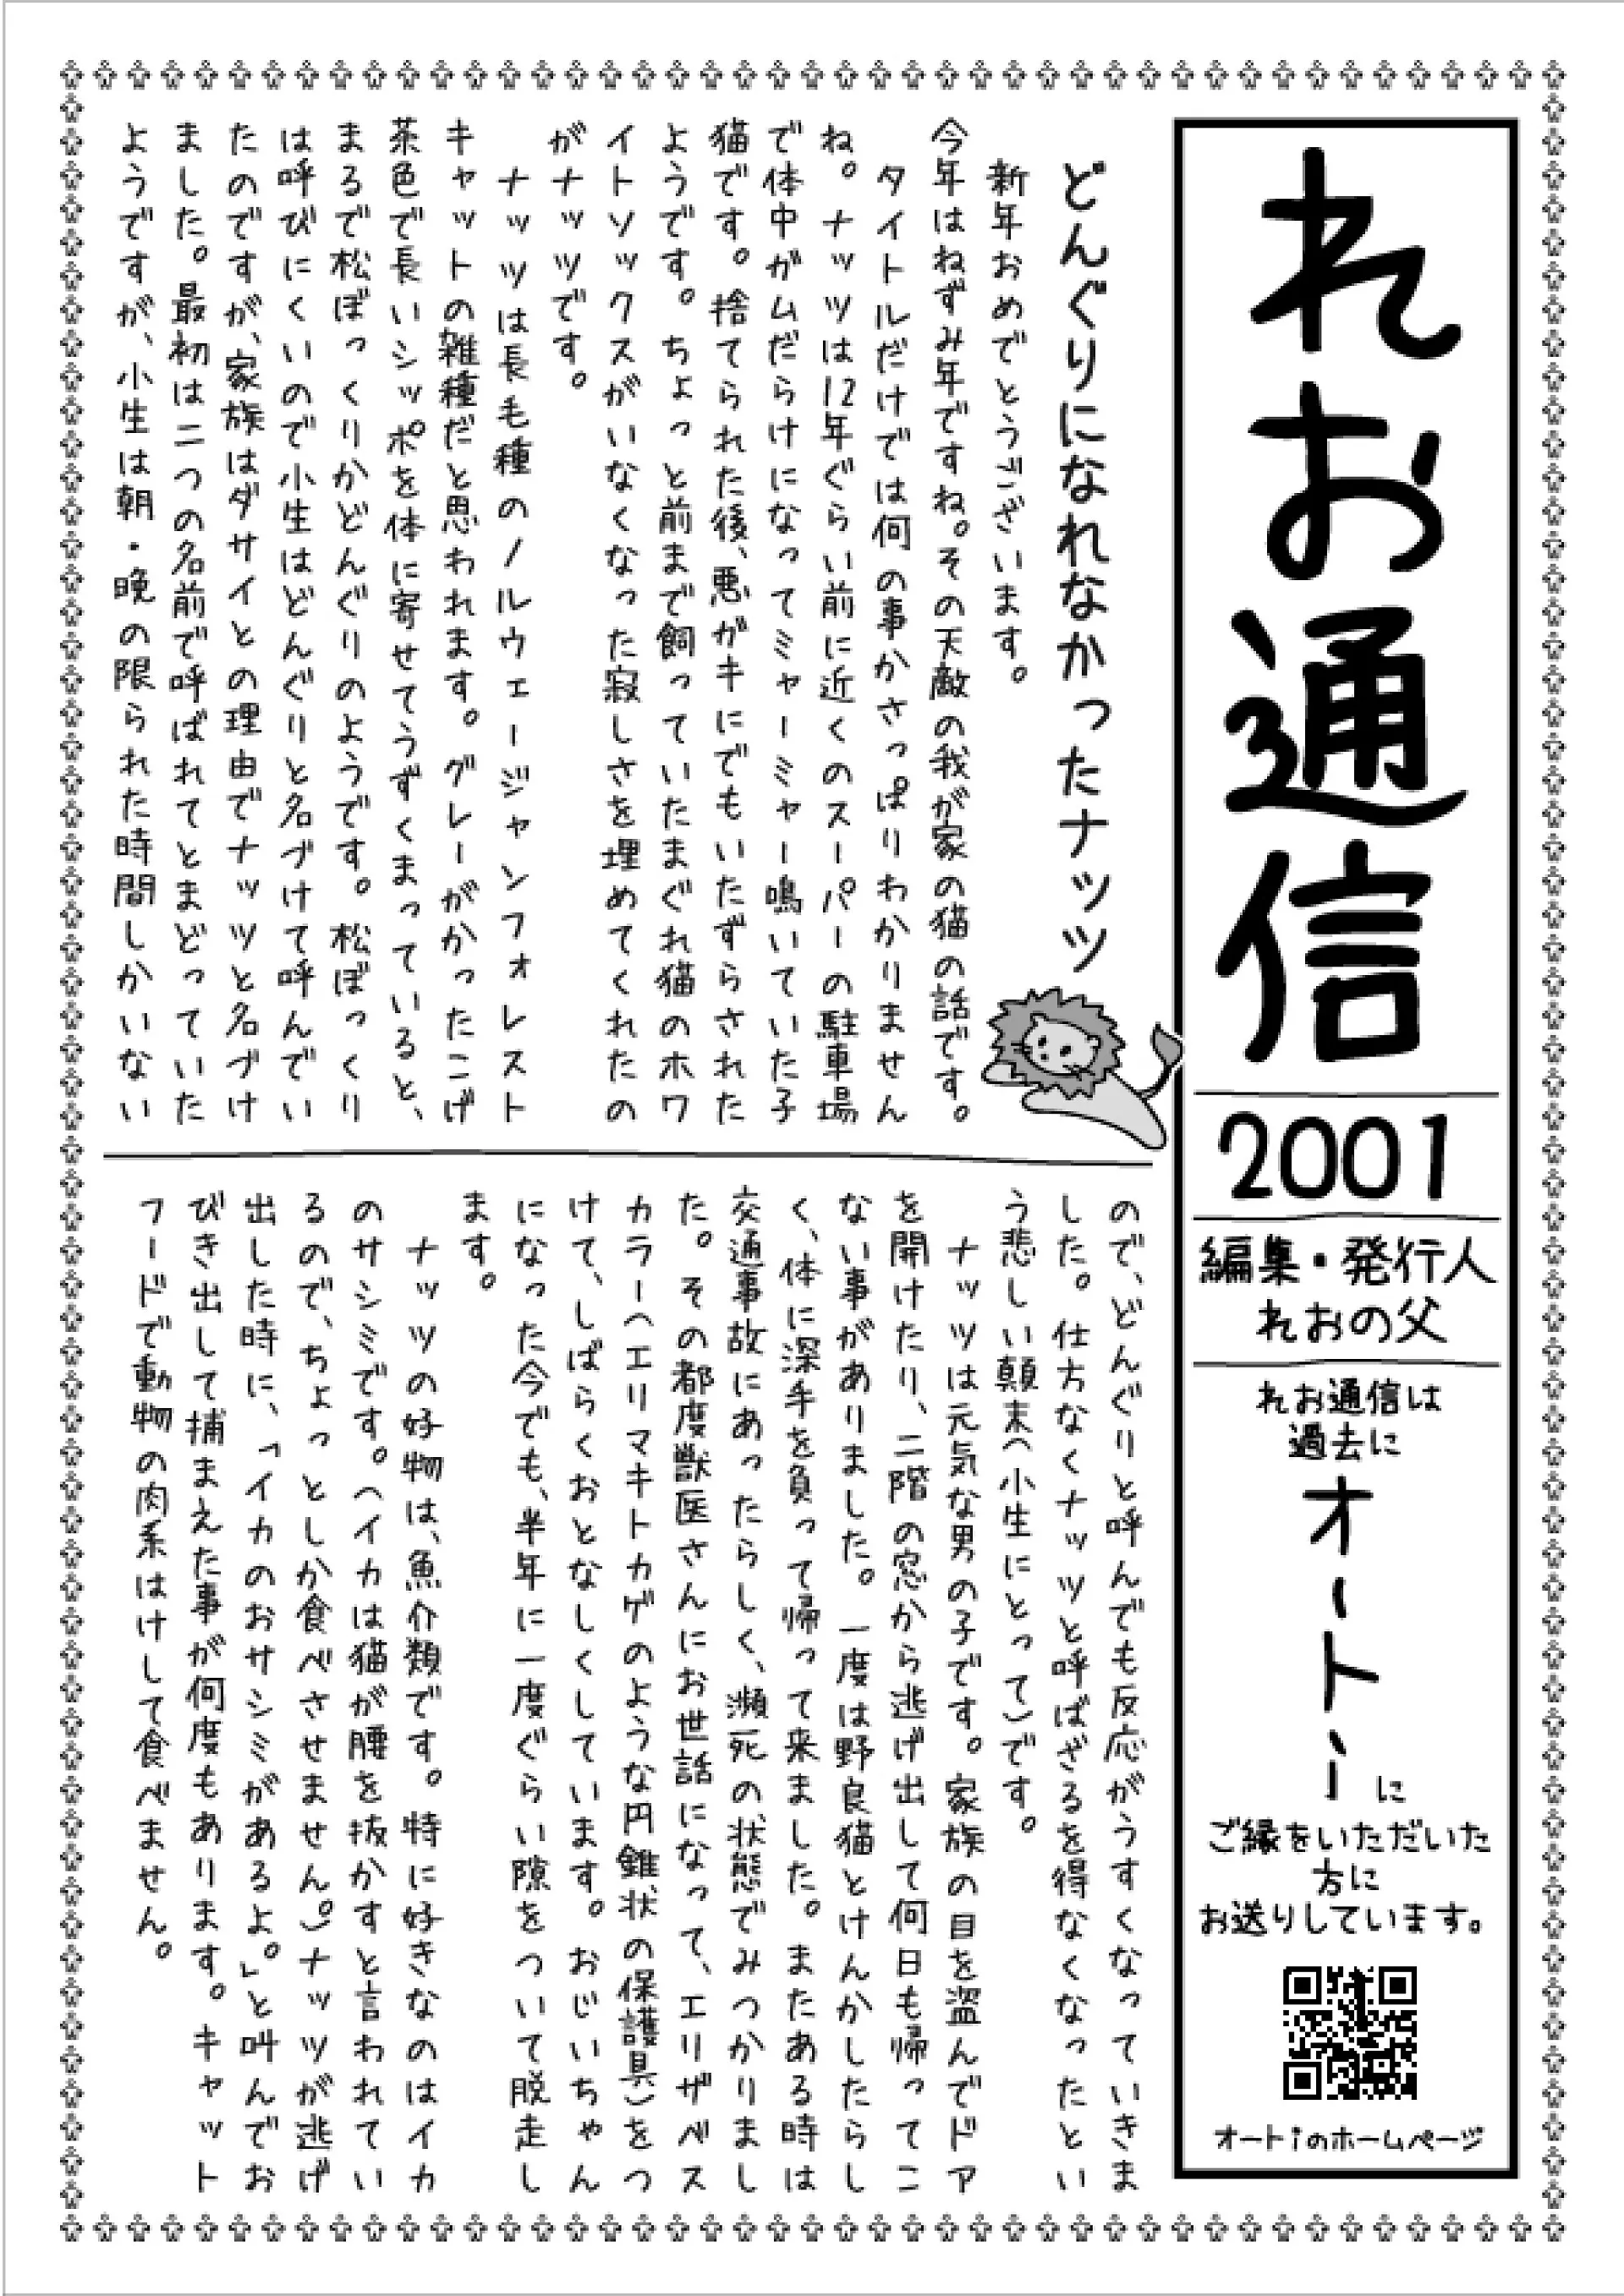 れお通信
2001
編集・発行人
れおの父
れお通信は
過去に
オートiに
ご縁をいただいた
方に
お送りしています。
オートiのホームページ
どんぐりになれなかったナッツ
新年おめでとうございます。
今年はねずみ年ですね。その天敵の我が家の猫の話です。
タイトルだけでは何の事かさっぱりわかりません
ね。ナッツは12年ぐらい前に近くのスーパーの駐車場
で体中がムだらけになってミャーミャー鳴いていた子
猫です。捨てられた後、悪がキにでもいたずらされた
ようです。ちょっと前まで飼っていたまぐれ猫のホワ
イトソックスがいなくなった寂しさを埋めてくれたの
がナッツです。
ナッツは長毛種のノルウェージャンフォレスト
キャットの雑種だと思われます。グレーがかったこげ
茶色で長いシッポを体に寄せてうずくまっていると、
まるで松ぼっくりかどんぐりのようです。松ぼっくり
は呼びにくいので小生はどんぐりと名づけて呼んでい
たのですが、家族はダサイとの理由でナッツと名づけ
ました。最初は二つの名前で呼ばれてとまどっていた
ようですが、小生は朝・晩の限られた時間しかいない
ので、どんぐりと呼んでも反応がうすくなっていきま
した。仕方なくナッツと呼ばざるを得なくなったとい
う悲しい顛末(小生にとって)です。
ナッツは元気な男の子です。家族の目を盗んでドア
を開けたり、二階の窓から逃げ出して何日も帰ってこ
ない事がありました。一度は野良猫とけんかしたらし
く、体に深手を負って帰って来ました。またある時は
交通事故にあったらしく、瀕死の状態でみつかりまし
た。その都度獣医さんにお世話になって、エリザベス
カラー(エリマキトカゲのような円錐状の保護具)をつ
けて、しばらくおとなしくしています。おじいちゃん
になった今でも、半年に一度ぐらい隙をついて脱走し
ます。
ナッツの好物は、魚介類です。特に好きなのはイカ
のサシミです。(イカは猫が腰を抜かすと言われてい
るので、ちょっとしか食べさせません。)ナッツが逃げ
出した時に、「イカのおサシミがあるよ。」と叫んでお
びき出して捕まえた事が何度もあります。キャット
フードで動物の肉系はけして食べません。